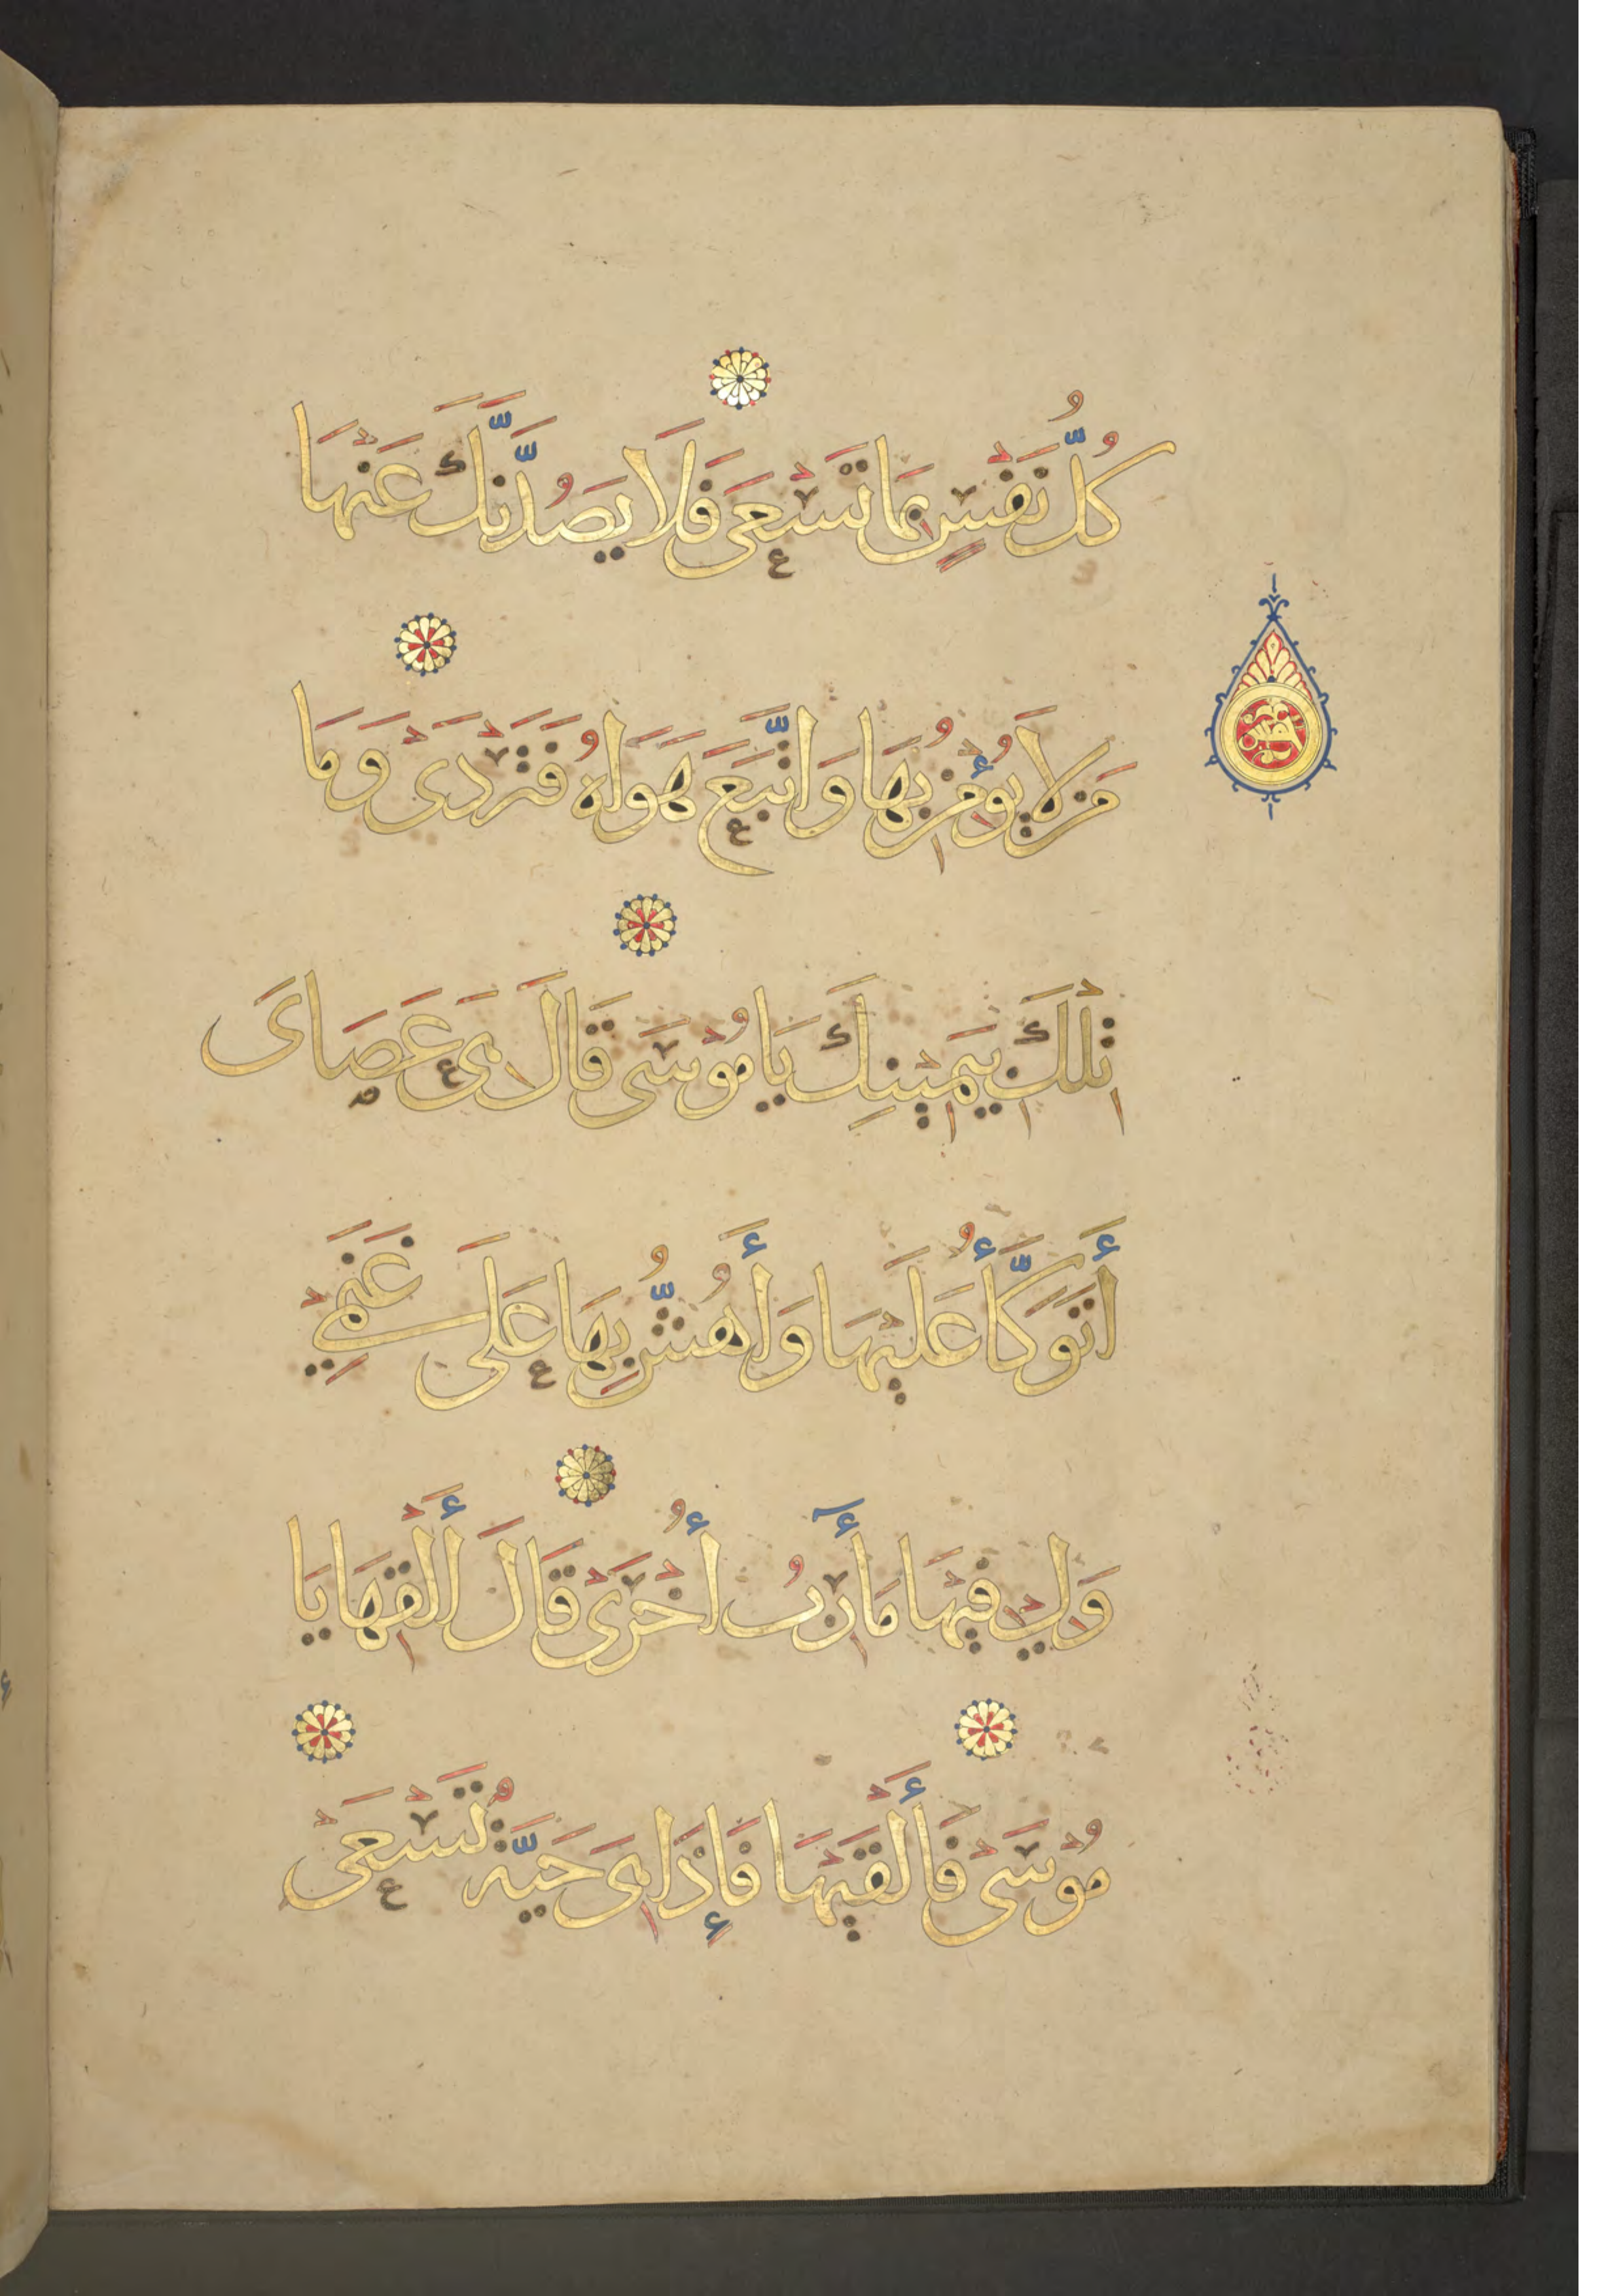 كُلُّ نَفْسٍ بِمَا تَسْعَى فَلَا يَصُدَّنَّكَ عَنْهَا
مَن لَا يُؤْمِنُ بِهَا وَاتَّبَعَ هَوَاهُ فَتَرْدَى وَمَا
تِلْكَ بِيَمِينِكَ يَا مُوسَى قَالَ هِىَ عَصَاىَ
أَتَوَكَّأُ عَلَيْهَا وَأَهُشُّ بِهَا عَلَى غَنَمِي
وَلِي فِيهَا مَأَرِبُ أُخْرَى قَالَ أَلْقِهَا يَا
مُوسَى فَأَلْقَيهَا فَإِذَا هِىَ حَيَّةٌ تَسْعَى